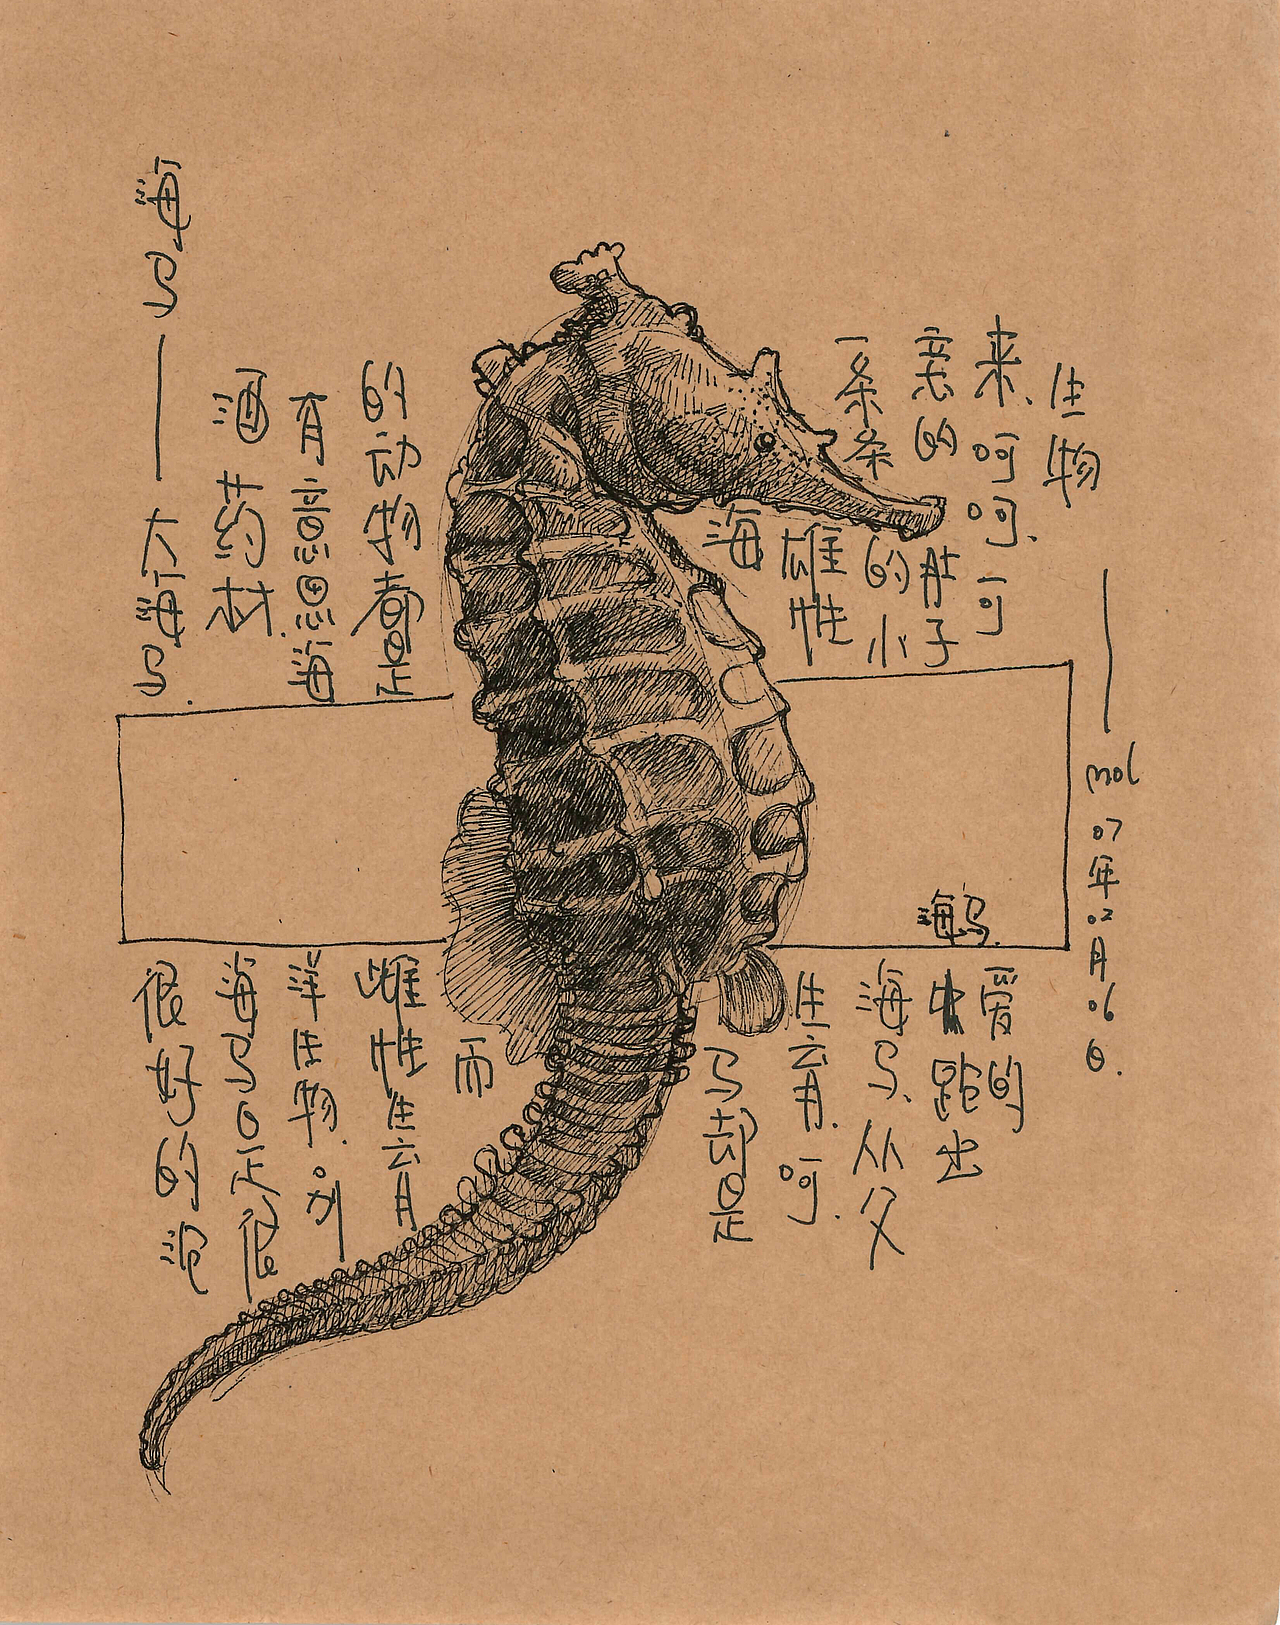 海马——大海马.
很好的泡
酒药材.
海马是很
有意思海
洋生物.别
的动物都是
雌性生育
而
海
马却是
雄性
生育.呵.
一条条的小
海马.从父
亲的肚子
中跑出
来.呵呵.可
爱的
生物——mol 07年02月06日.
海马.